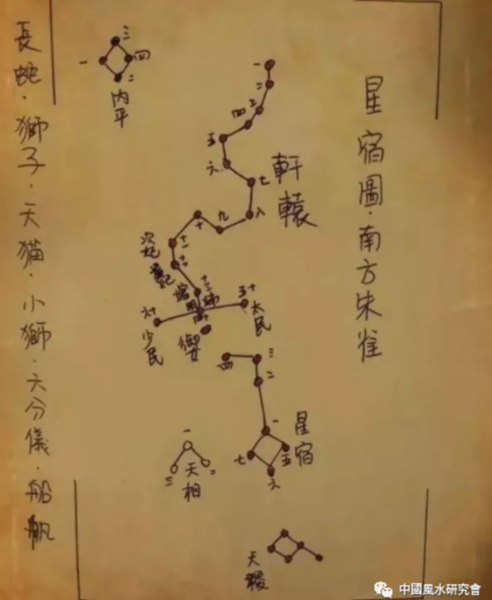 星宿圖·南方朱雀
三
一
四
二
内平
一
二
三
四
五
六
七
八
九
十
十一
十二
十三
十四
軒轅
次妃
五十
大民
六十
少民
御女
三
四
二
一
七
五
六
星宿
一
三
二
天相
天稷
長蛇·獅子·天猫·小獅·六分儀·船帆
中國風水研究會